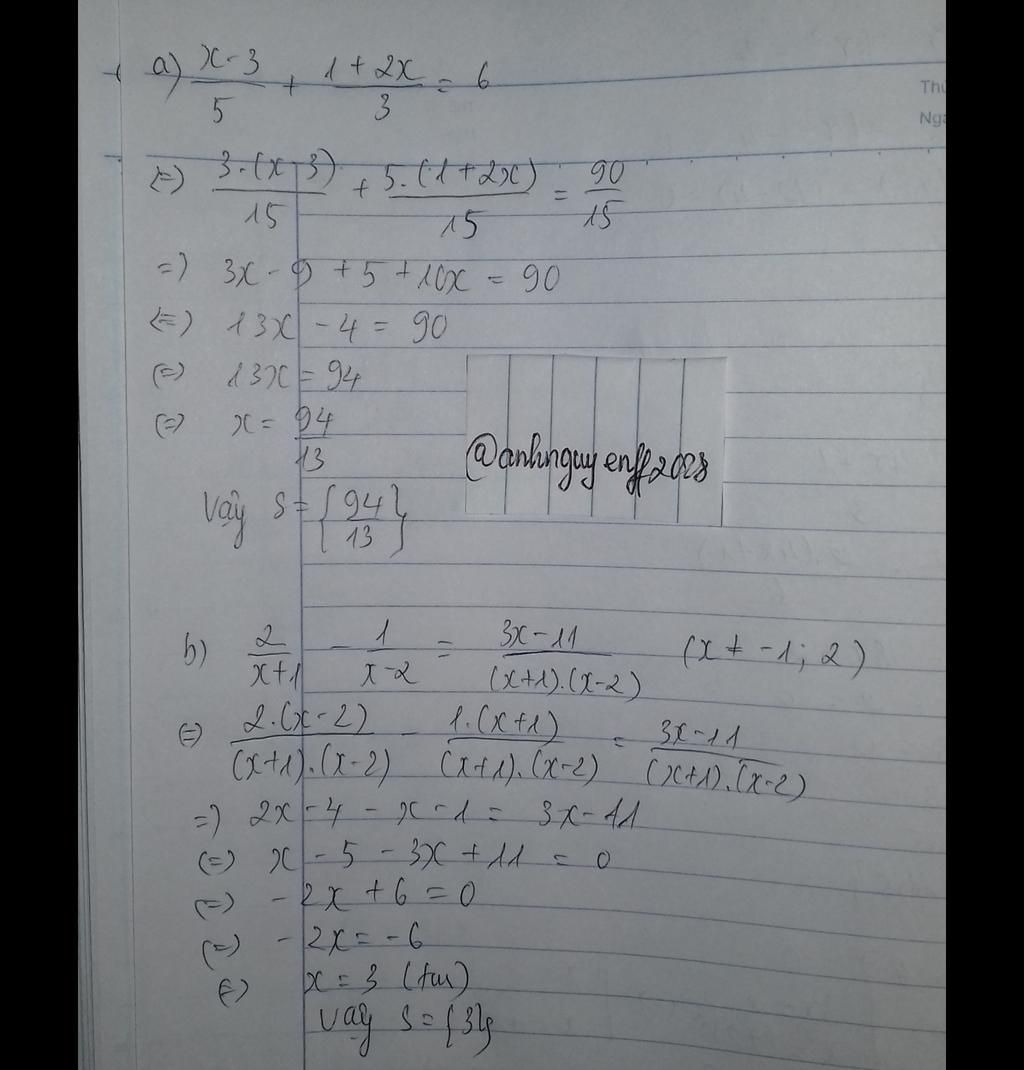 a) x-3/5 + 1+2x/3 = 6
Thứ
Ngà
(=) 3.(x-3)/15 + 5.(1+2x)/15 = 90/15
=) 3x - 9 + 5 + 10x = 90
(=) 13x - 4 = 90
(=) 13x = 94
(=) x = 94/13
@anhnguyenff2028
Vậy S = {94/13}
b) 2/x+1 - 1/x-2 = 3x-11/(x+1).(x-2) (x ≠ -1; 2)
(=) 2.(x-2)/(x+1).(x-2) - 1.(x+1)/(x+1).(x-2) = 3x-11/(x+1).(x-2)
=) 2x - 4 - x - 1 = 3x - 11
(=) x - 5 - 3x + 11 = 0
(=) -2x + 6 = 0
(=) -2x = -6
(=) x = 3 (tm)
Vậy S = {3}